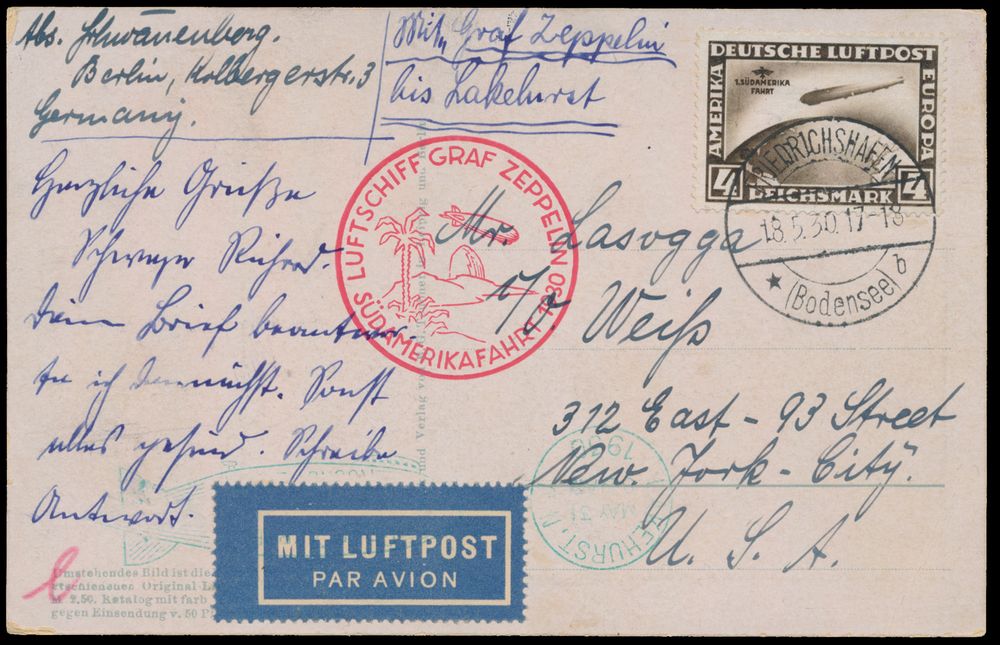 Abs. Schwanenberg.
Berlin, Kolbergerstr. 3
Germany.
Mit „Graf Zeppelin
bis Lakehurst
DEUTSCHE LUFTPOST
AMERIKA
EUROPA
1. SÜDAMERIKA
FAHRT
4
REICHSMARK
4
FRIEDRICHSHAFEN
18.5.30.17-18
(Bodensee)
b
LUFTSCHIFF GRAF ZEPPELIN
SÜDAMERIKAFAHRT 1930
Herzliche Grüße
Schwager Richard.
Dein Brief beantwor-
te ich demnächst. Sonst
alles gesund. Schreibe
Antwort.
Mr.
Weiß
312 East - 93 Street
New-York-City.
U. S. A.
MAY 31
MIT LUFTPOST
PAR AVION
Umstehendes Bild ist die
erschienenen Original-L
M 2.50. Katalog mit farb
gegen Einsendung v. 50 P
und Verlag vo